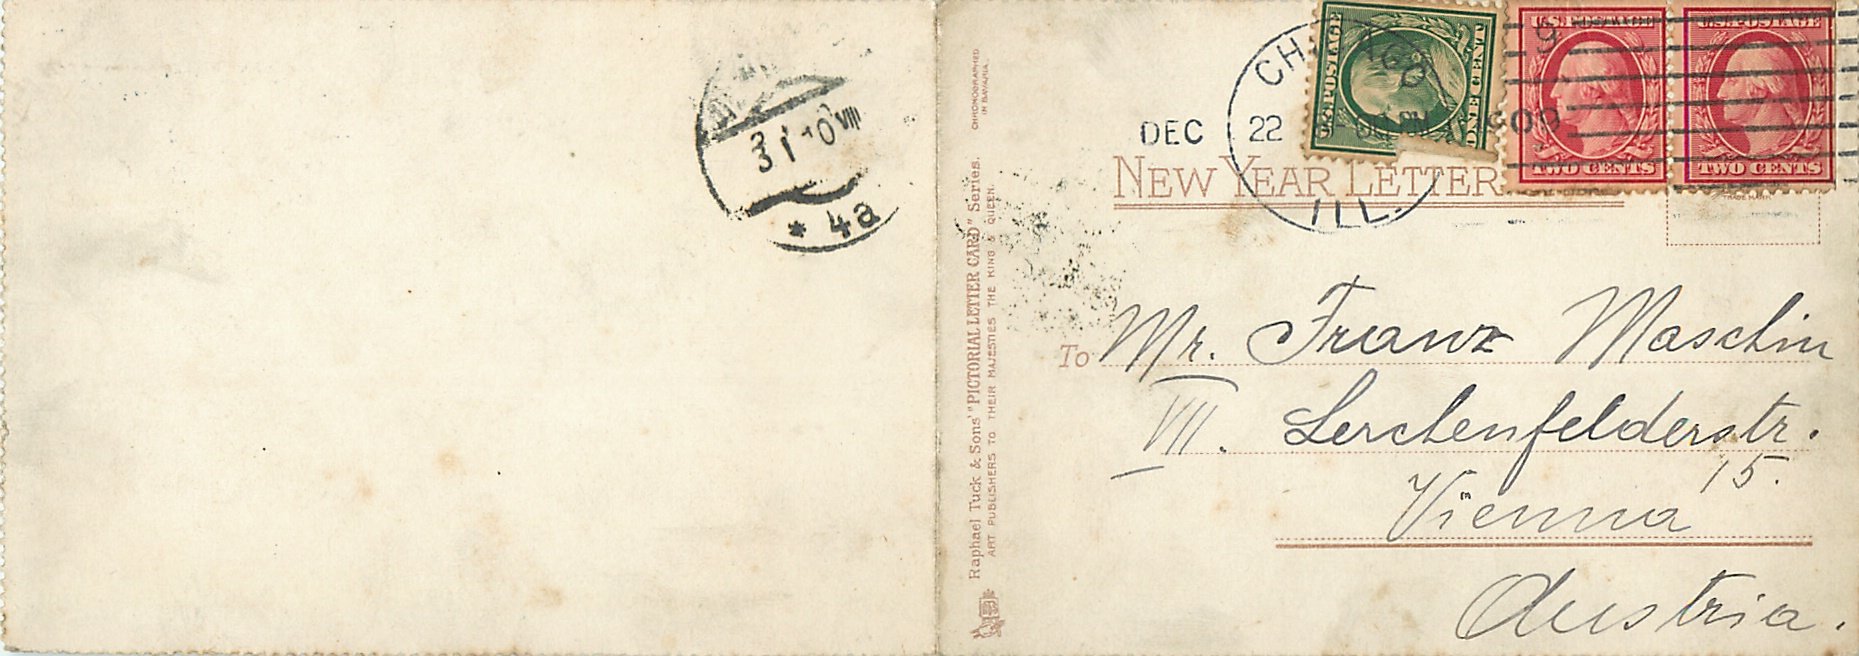 3 1 10 VIII
* 4a
CHROMOGRAPHED
IN BAVARIA.
Raphael Tuck & Sons' "PICTORIAL LETTER CARD" Series.
ART PUBLISHERS TO THEIR MAJESTIES THE KING & QUEEN.
U.S. POSTAGE
ONE CENT
U.S. POSTAGE
TWO CENTS
U.S. POSTAGE
TWO CENTS
CHICAGO
DEC 22
ILL.
NEW YEAR LETTER
TRADE MARK
To Mr. Franz Maschin
VII. Lerchenfelderstr.
15.
Vienna
Austria.